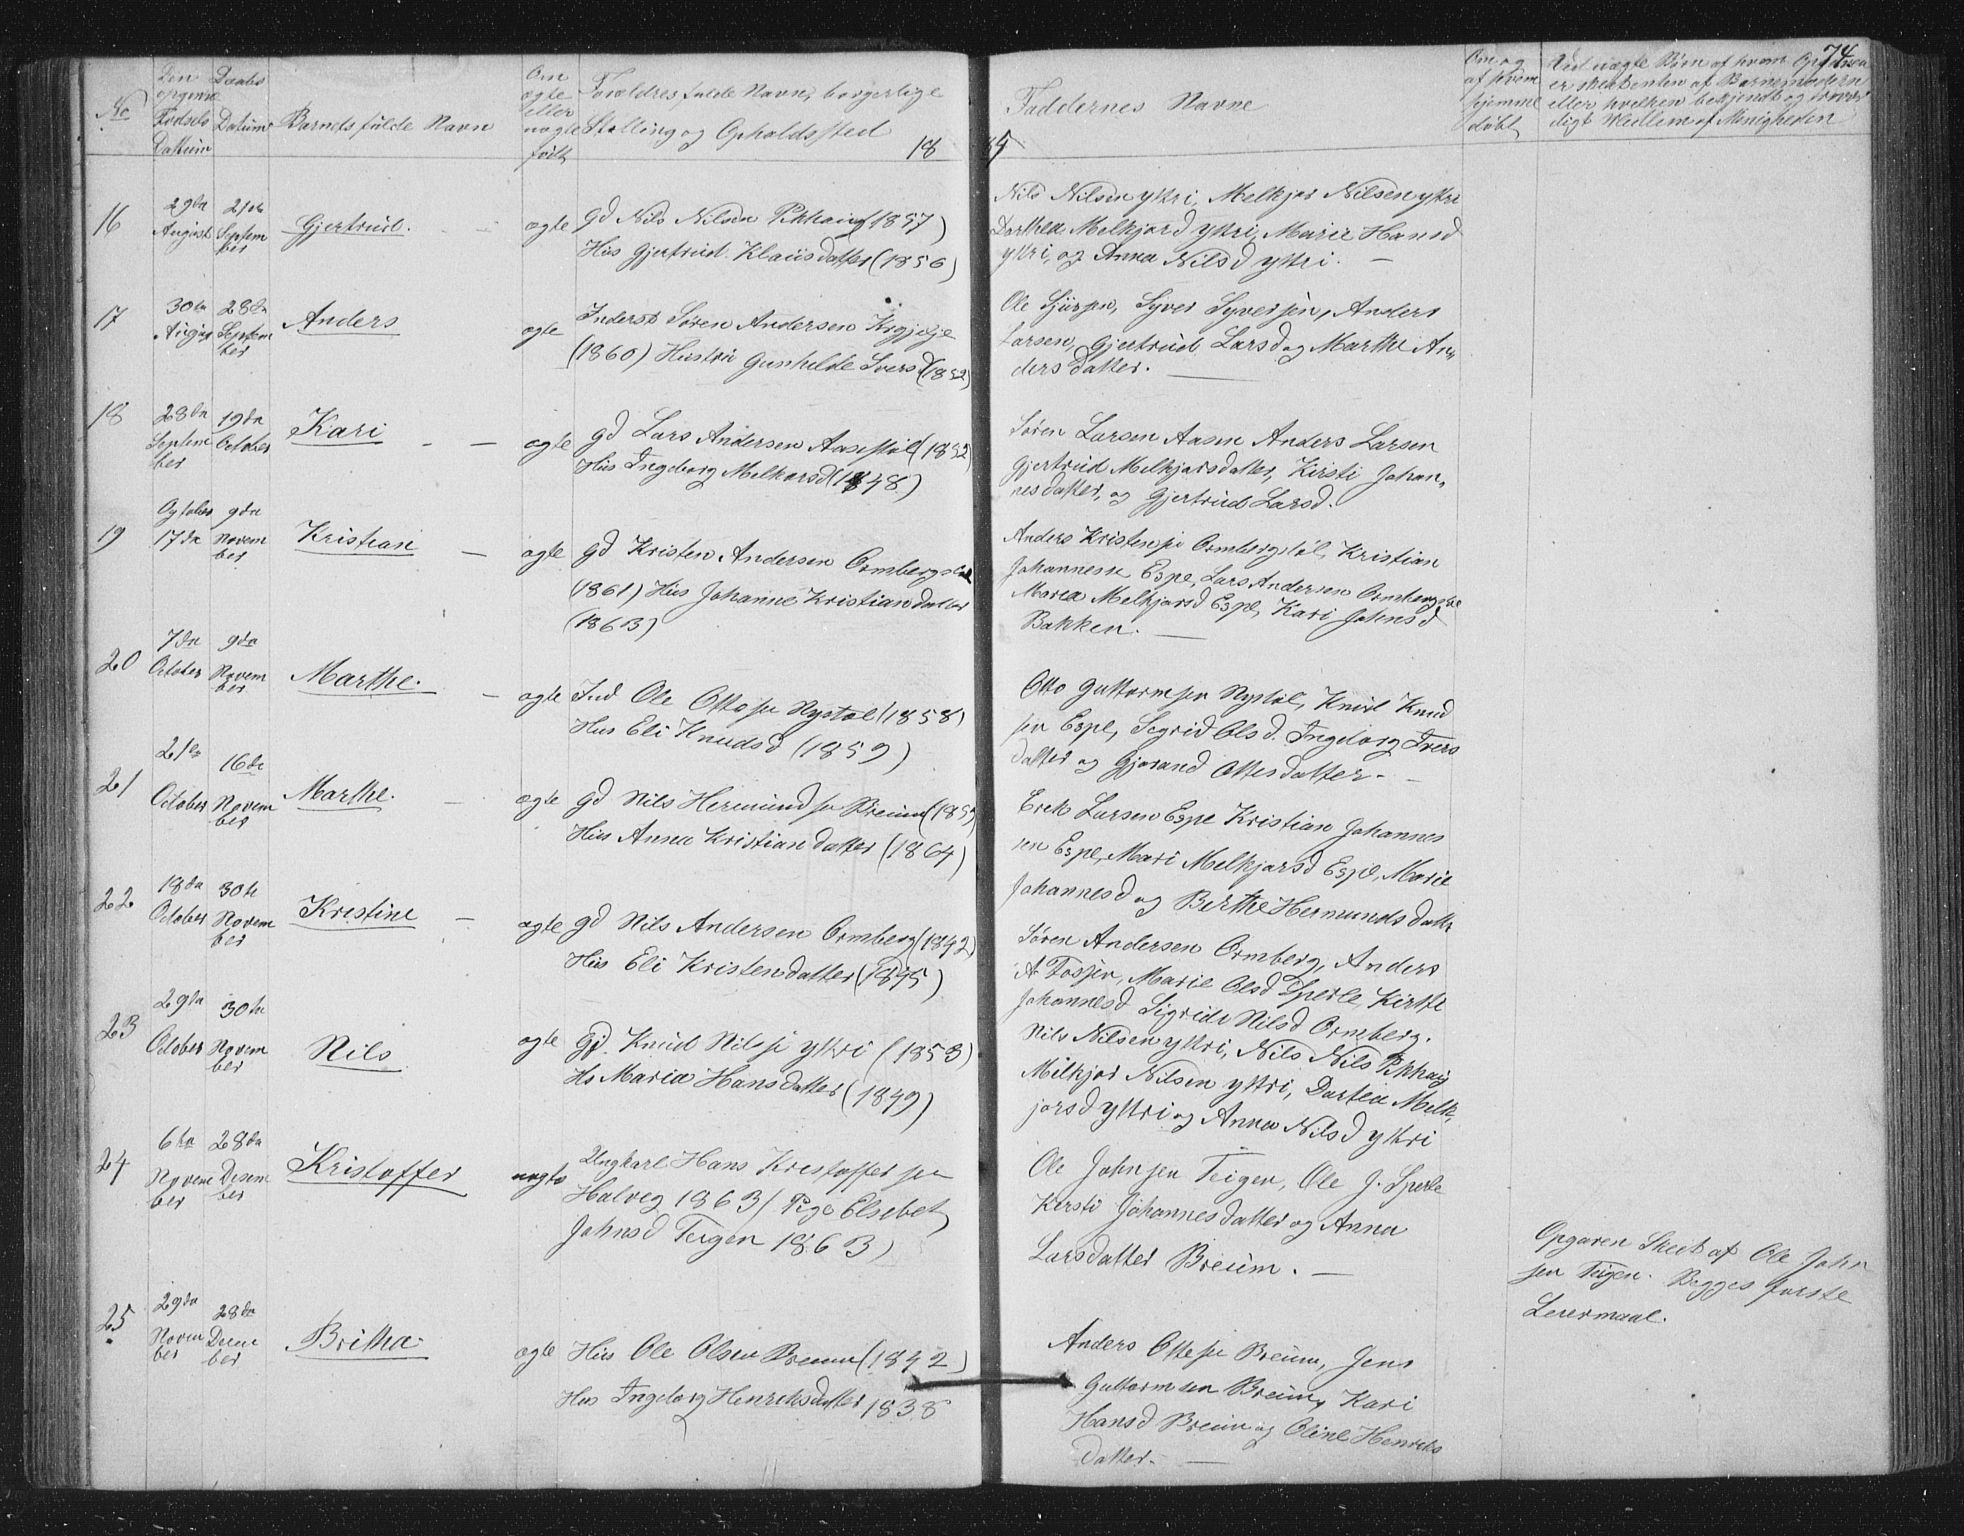 74
No
Den opgivne Fødsels Dattum
Daabs Datum
Barnets fulde Navn
Om ægte eller uægte født
Forældres fulde Navn, borgerlige
Stilling og Opholdssted
18 85
Faddernes Navne
Om og af hvem hjemme døbt
Ved uægte Børn af hvem Opgaven
er skeet enten af Barnemoderen
eller hvilken bekjendt og troverdigt Medlem af Menigheden
16
29da August
21de September
Gjertrud.
ægte
Gd Nils Nilsen Pikhaug (1857)
Hus Gjertrud Klausdatter (1856)
Nils Nilsen ytri, Melkjor Nilsen ytri
Dorthea Melkjorsd ytri, Marie Hansd
ytri, og Anna Nilsd ytri. —
17
30te August
28da September
Anders
ægte
Inderst Søren Andersen
(1860) Hustru Gunhilde Iversd (1852)
Ole Sjursen, Syver Syversen, Anders
Larsen, Gjertrud Larsd og Marthe An„
dersdatter. —
18
28da September
19da October
Kari
ægte
Gd Lars Andersen Aasestøl (1852)
Hus Ingeborg Melkorsd (1848.)
Søren Larsen Aasen Anders Larsen
Gjertrud Melkjorsdatter, Kirsti Johan„
nesdatter, og Gjertrud Larsd.
19
October 17da
9da November
Kristian
ægte
Gd Kristen Andersen Ormbergstøl
(1861) Hus Johanne Kristiandatter
(1863)
Anders Kristensen Ormbergstøl, Kristian
Johannesse Espe, Lars Andersen Ormbergstøl
Maria Melkjorsd Espe, Kari Johnsd
Bakken. —
20
7da October
9da November
Marthe.
ægte
Ind Ole Ottosen Nystøl (1858)
Hus Eli Knudsd (1859)
Otto Guttormsen Nystøl, Knud Knud
sen Espe, Sigrid Olsd. Ingeborg Ivers
datter og Gjorand Ottesdatter. —
21
21de October
16de November
Marthe.
ægte
Gd Nils Hermundsen Breium (1855)
Hus Anna Kristiandatter (1864)
Erik Larsen Espe Kristian Johannes
sen Espe, Mari Melkjorsd Espe, Marie
Johannesd og Berthe Hermundsdatter
22
18da October
30te November
Kristine
ægte
Gd Nils Andersen Ormberg (1842)
Hus Eli Kristendatter (1845)
Søren Andersen Ormberg, Anders
A Fossen, Marie Olsd Sperle, Kirsti
Johannesd Sigride Nilsd Ormberg.
23
29da October
30te November
Nils
ægte
Gd. Knud Nilse ytri (1853)
Hs Maria Hansdatter (1849)
Nils Nilsen ytri, Nils Nils Pikhaug
Milkjor Nilsen ytri, Dortea Melk„
jorsd ytri og Anna Nilsd ytri
24
6ta November
28da Desember
Kristoffer
uægte
Ungkarl Hans Kristoffersen
Halveg 1863 / Pige Elsebet
Johnsd Teigen 1863)
Ole Johnsen Teigen, Ole J. Sperle
Kersti Johannesdatter og Anna
Larsdatter Breium. —
Opgaven Skeet af Ole John
sen Teigen. Begges første
Leiermaal.
25
29da November
28da December
Britha.
ægte
Hus Ole Olsen Breium (1842)
Hus Ingeborg Henriksdatter 1838
Anders Ottesen Breium, Jens
Guttormsen Breium, Kari
Hansd Breium og Oline Henriks
datter. —